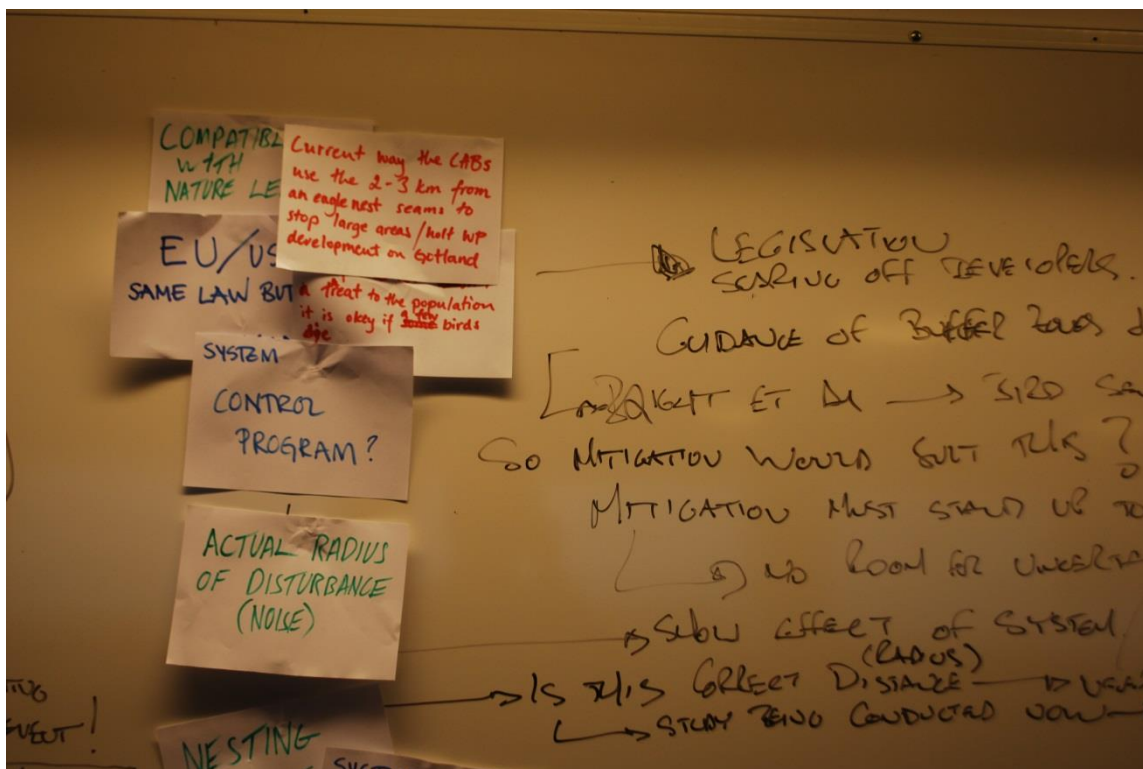 COMPATIBL
WITH
NATURE LE
Current way the CABs
use the 2-3 km from
an eagle nest seams to
stop large areas/holt WP
development on Gotland
EU/US
SAME LAW BUT
a treat to the population
it is okey if a few birds
die
SYSTEM
CONTROL
PROGRAM?
ACTUAL RADIUS
OF DISTURBANCE
(NOISE)
NESTING
SYST
EVENT!
LEGISLATION
SCARING OFF DEVELOPERS.
GUIDANCE OF BUFFER ZONES
BRIGHT ET AL → BIRD SE
SO MITIGATION WOULD SUIT THIS?
MITIGATION MUST STAND UP TO
→ NO ROOM FOR UNCERTA
→ SHOW EFFECT OF SYSTEM
(RADIUS)
→ IS THIS CORRECT DISTANCE →
→ STUDY BEING CONDUCTED NOW